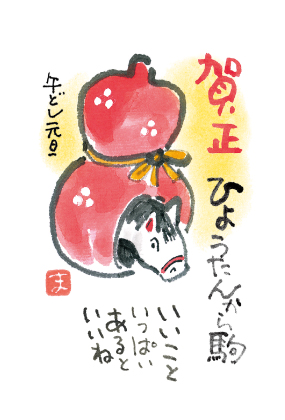 賀正
ひょうたんから駒
午どし元旦
いいこと
いっぱい
あると
いいね
ま